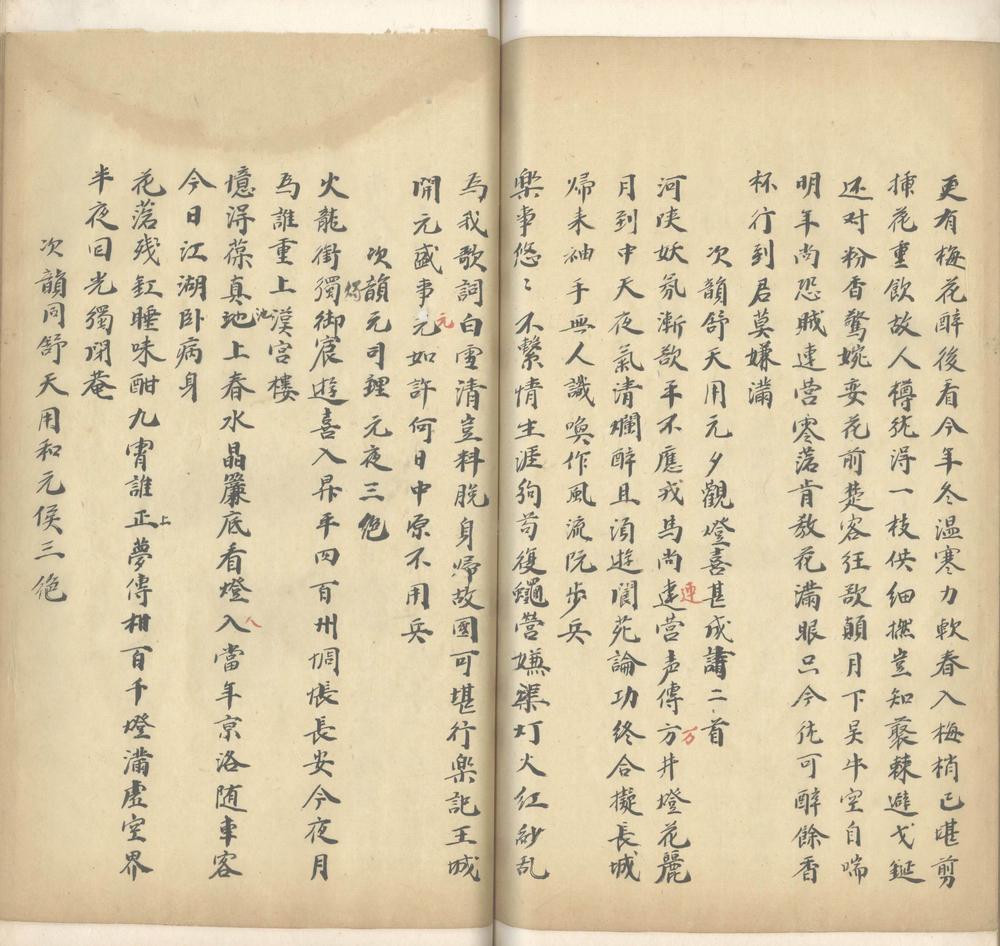 更有梅花醉後看今年冬温寒力軟春入梅梢已堪剪
揷花重飲故人樽彘得一枝供细撚豈知裹棘避戈鋋
还对粉香驚婉娈花前楚客狂歌顛月下吴牛空自喘
明年尚恐賊連营零落肯教花滿眼只今皃可醉餘香
杯行到君莫嫌滿
次韻舒天用元夕觀燈喜甚成詩二首
河陕妖氛漸欲平不應戎馬尚連营声傳方井燈花麗
連
万
月到中天夜氣清爛醉且須遊閬苑論功终合擬長城
帰来袖手無人識喚作風流阮步兵
樂事悠〻不繫情生涯狥苟復蠅营嫌渠灯火红紗乱
為我歌詞白雪清豈料脱身帰故國可堪行樂記王城
開元盛事元如許何日中原不用兵
元
次韻元司理元夜三絶
火龍銜獨御宸遊喜入昇平四百州惆悵長安今夜月
燭
為誰重上漢宫樓
憶得葆真池上春水晶簾底看燈入當年京洛随車客
池
人
今日江湖卧病身
花落殘釭睡味酣九霄誰正夢傳柑百千燈滿虚空界
上
半夜囘光獨閉菴
次韻同舒天用和元侯三絶